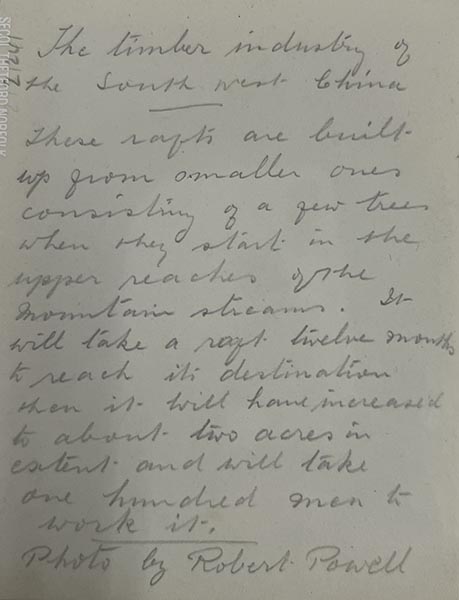 The timber industry of
the South West China
These rafts are built
up from smaller ones
consisting of a few trees
when they start in the
upper reaches of the
mountain streams. It
will take a raft twelve months
to reach its destination
then it will have increased
to about two acres in
extent and will take
one hundred men to
work it.
Photo by Robert Powell